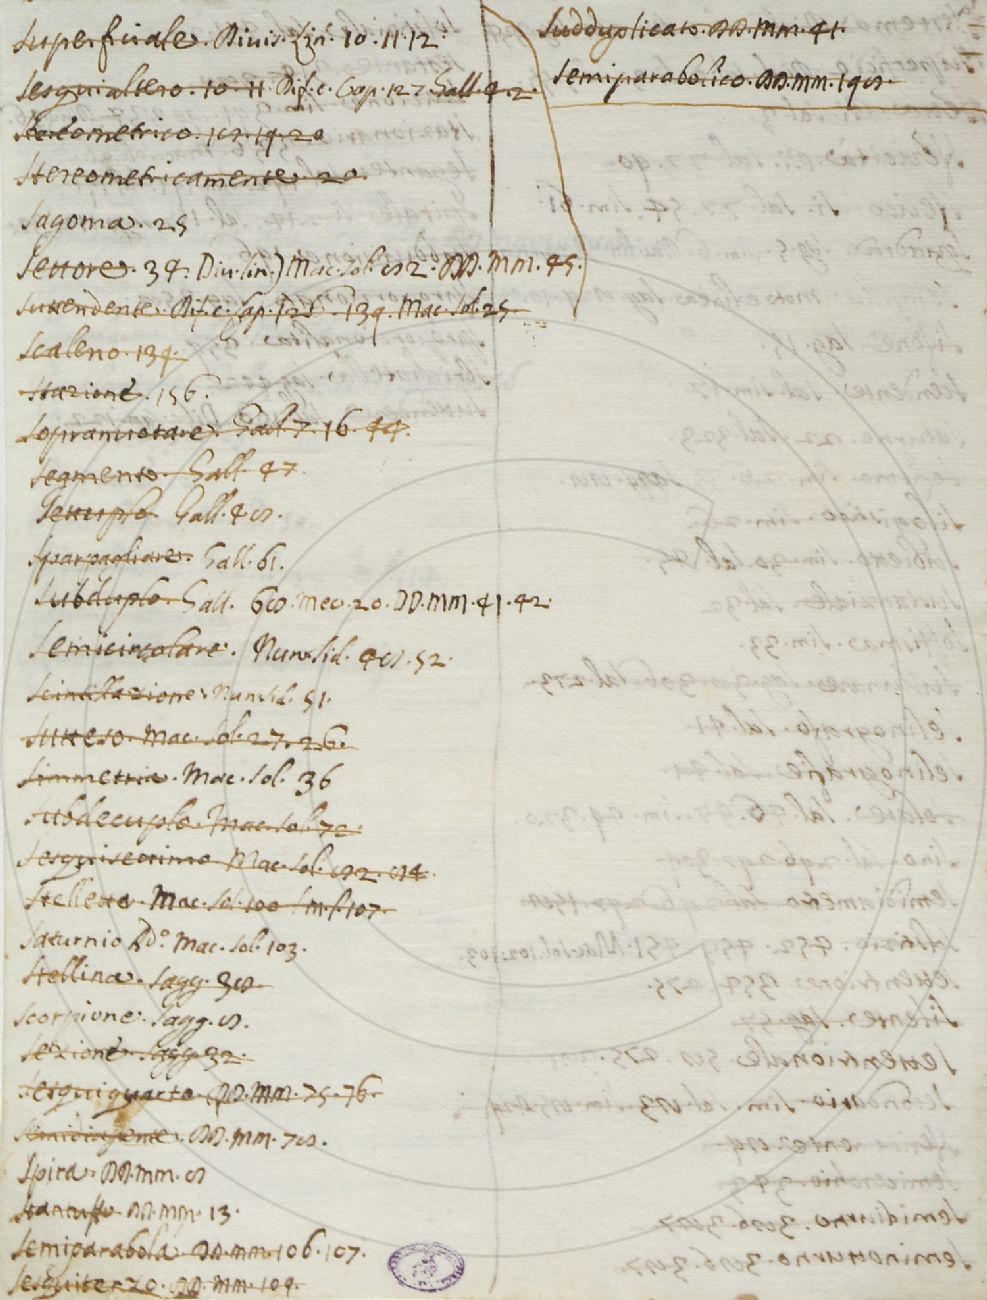 Superficiale. Divis. lin. 10. 11. 12
Sesquialtero. 10. 11. Dif. c. Cap. 127. Gall. 42.
Stereometrico. 19. 20
Stereometricamente 20.
Sagoma. 25
Settore. 34. Div. lin.) Mac. Sol. 82. DD. MM. 45.
Suttendente. Dif. c. Cap. 139. Mac. Sol. 25.
Scaleno. 139.
Stazione. 156.
Sopranuotare. Gall. 7. 16. 44.
Segmento. Gall. 47.
Settuplo. Gall. 48.
Sparpagliare. Gall. 61.
Subduplo. Gall. 68. Mec. 20. DD. MM. 41. 42.
Semicircolare. Nun. Sid. 48. 52.
Scintillazione. Nun. Sid. 51.
Sutteso. Mac. Sol. 27. 26.
Simmetria. Mac. Sol. 36
Subdecuplo. Mac. Sol. 72.
Mac. Sol. 82. 84.
Stellette. Mac. Sol. 100. 107.
Saturnio Mac. Sol. 103.
Stellina. Sagg. 38.
Scorpione. Sagg. 8.
Sezione. Sagg. 32.
Sesquiquarto. DD. MM. 75. 76.
DD. MM. 78.
Spira. DD. MM. 8
Stantuffo. DD. MM. 13.
Semiparabola. DD. MM. 106. 107.
Sesquiterzo. DD. MM. 109.
Sudduplicato. DD. MM. 41.
Semiparabolico. DD. MM. 198.